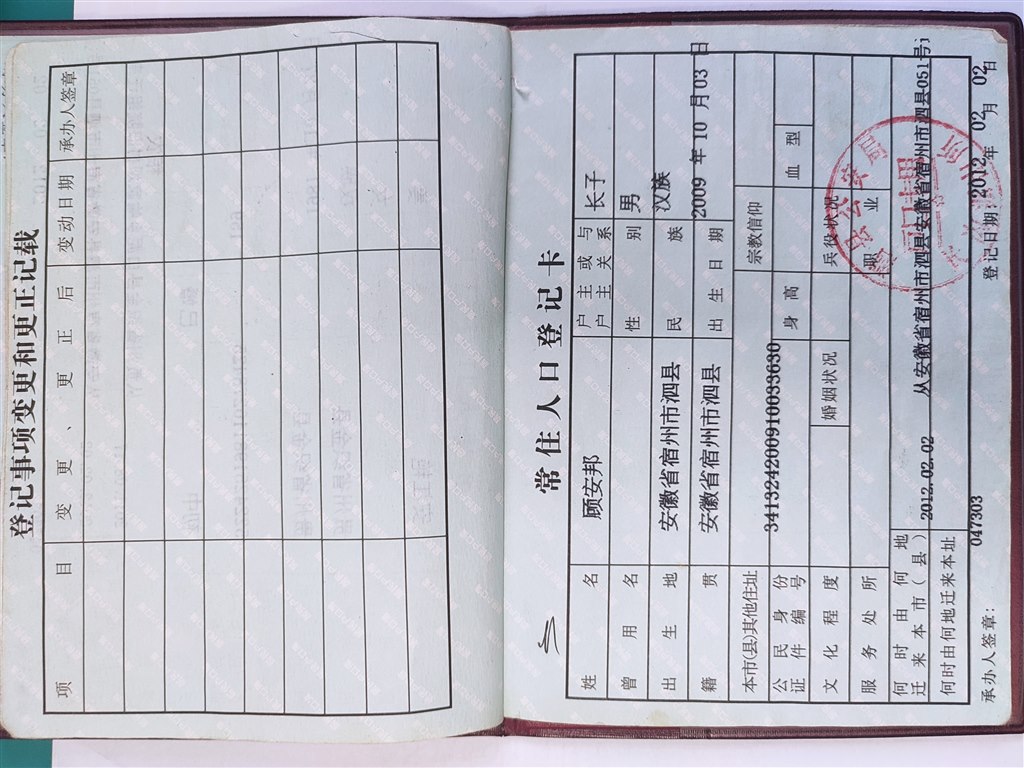 登记事项变更和更正记载
项目 变更、更正后 变动日期 承办人签章
常住人口登记卡
姓名 顾安邦 户主或与户主关系 长子
曾用名 性别 男
出生地 安徽省宿州市泗县 民族 汉族
籍贯 安徽省宿州市泗县 出生日期 2009 年 10 月 03 日
本市(县)其他住址 宗教信仰
公民身份证件编号 341324200910033630 身高 血型
文化程度 婚姻状况 兵役状况
服务处所 职业
何时由何地迁来本市(县) 2012.02.02 从安徽省宿州市泗县安徽省宿州市泗县051号
何时由何地迁来本址
047303
承办人签章: 登记日期: 2012 年 02 月 02 日